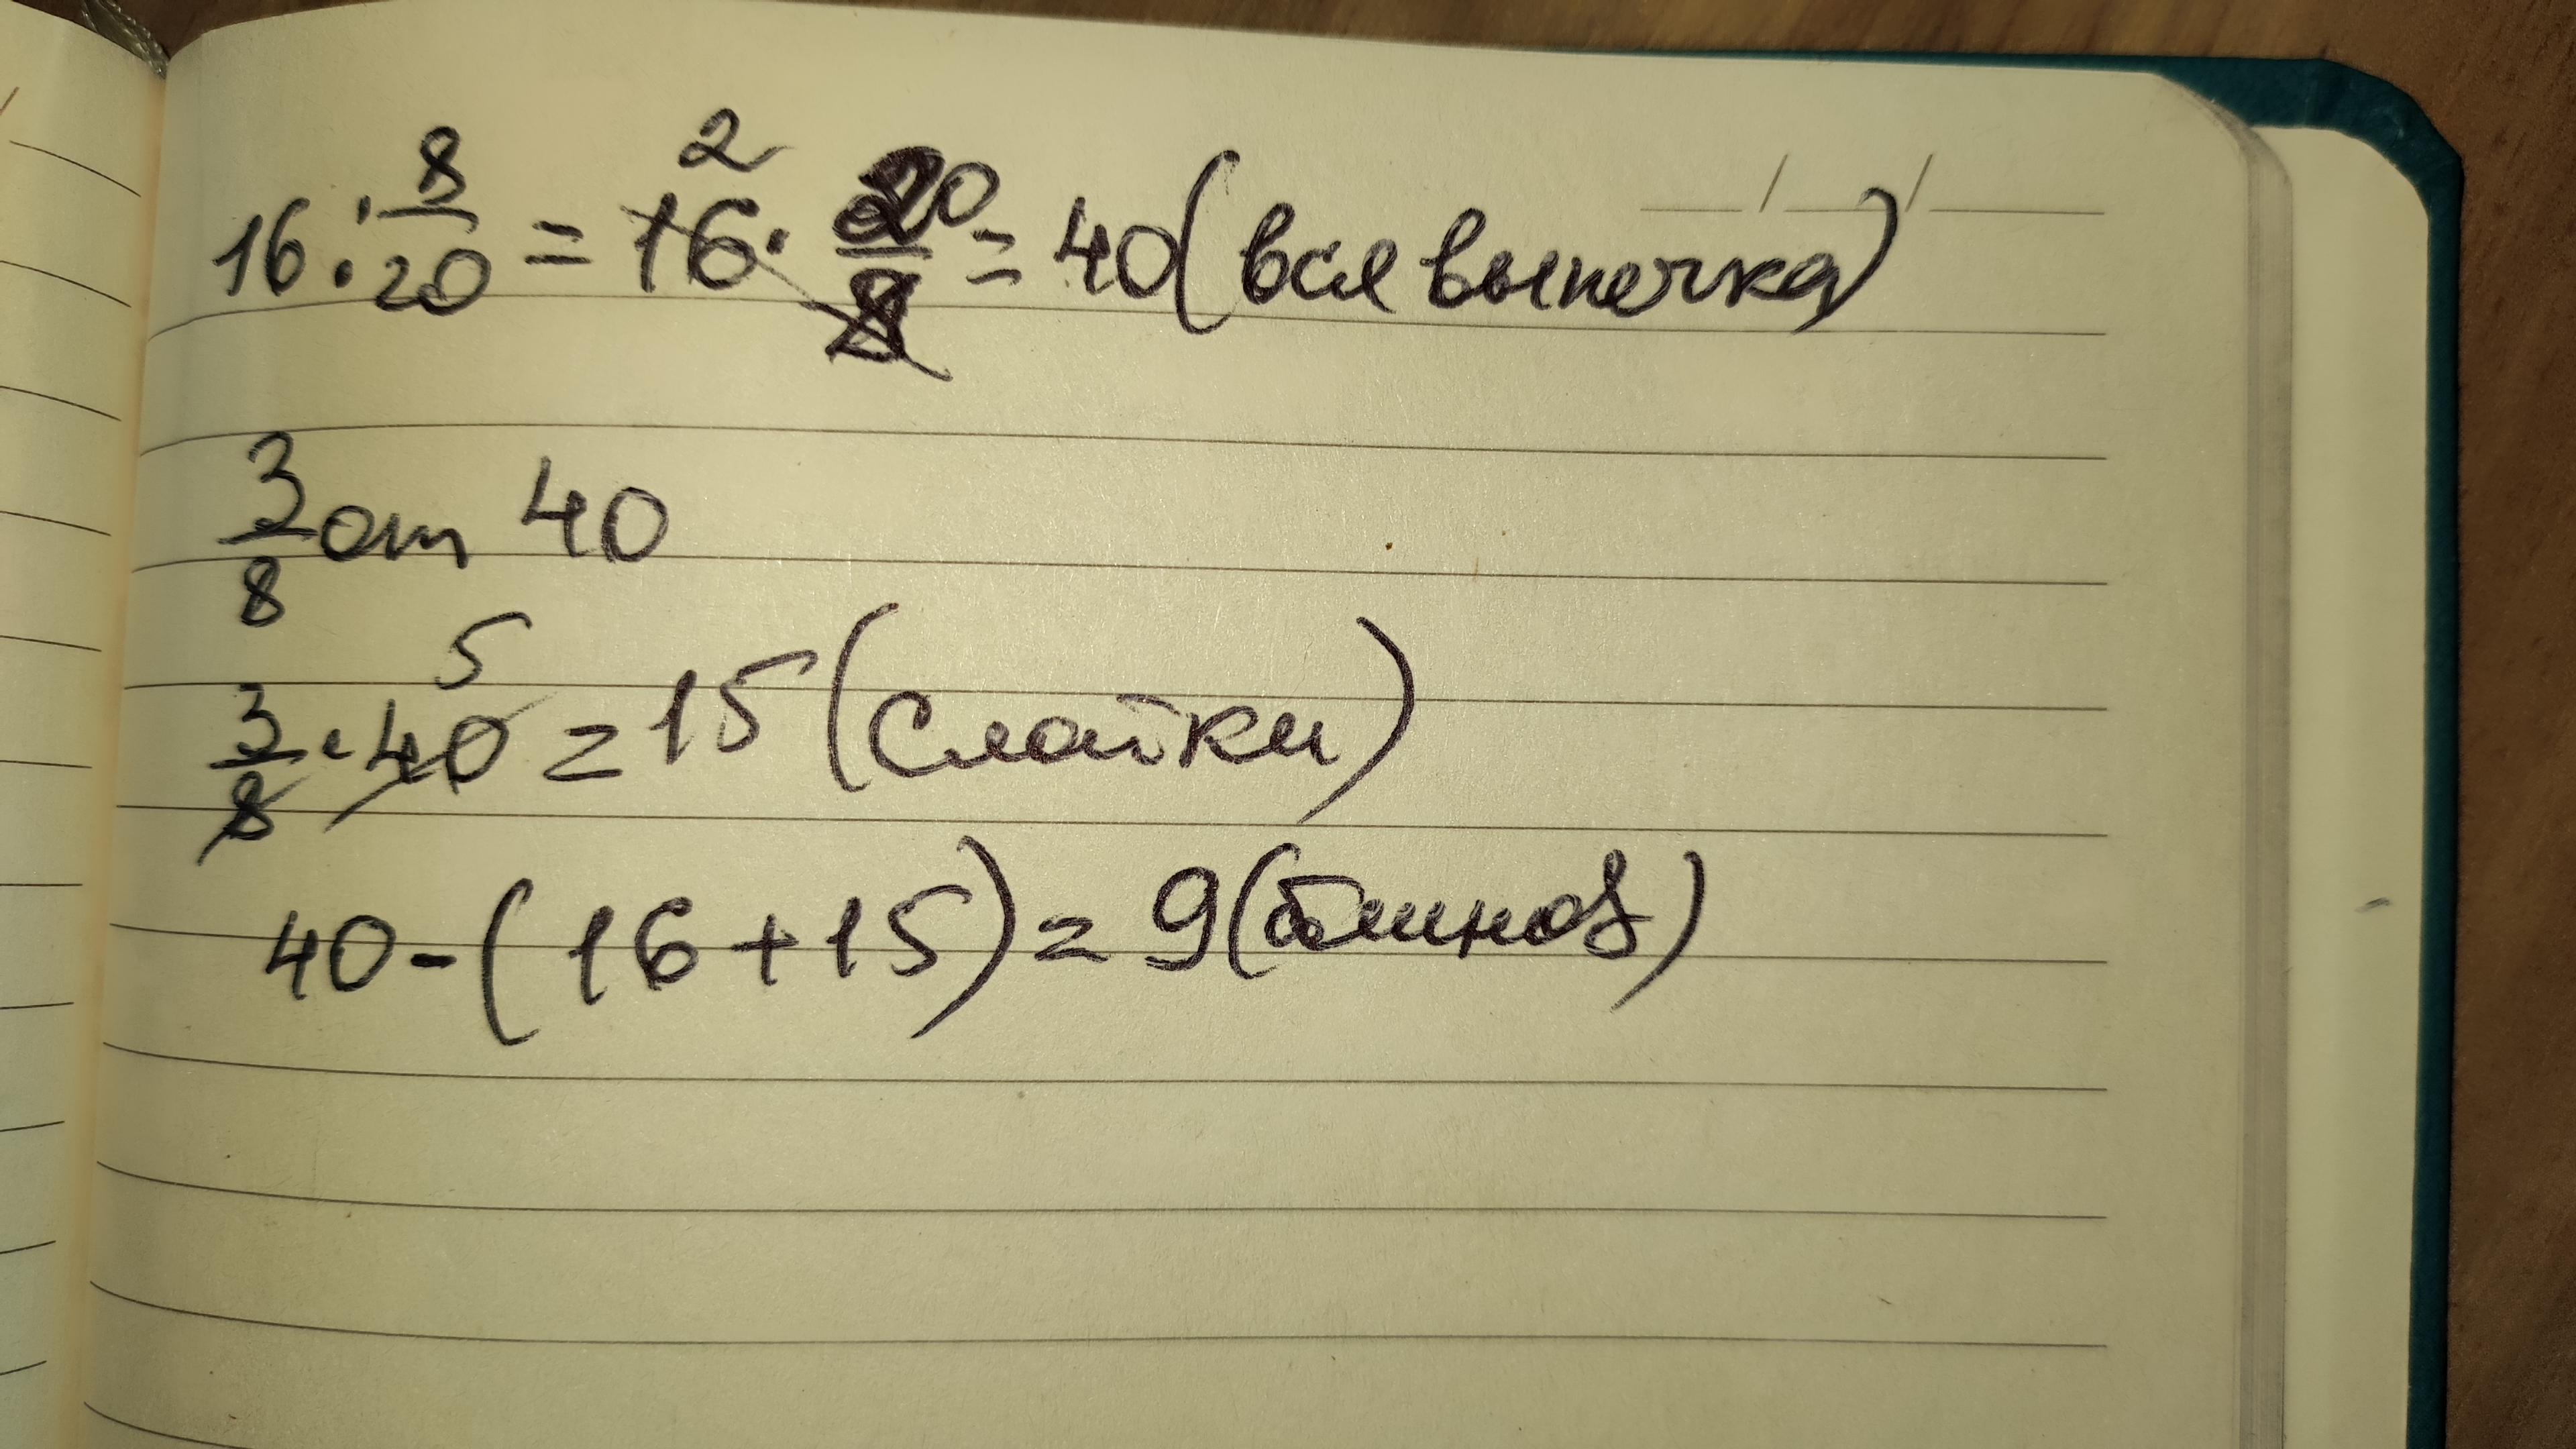 16 : 8/20 = 16 2 · 20/8 = 40 (вся выпечка)
3/8 от 40
3/8 · 40 5 = 15 (слойки)
40 - (16 + 15) = 9 (блинов)